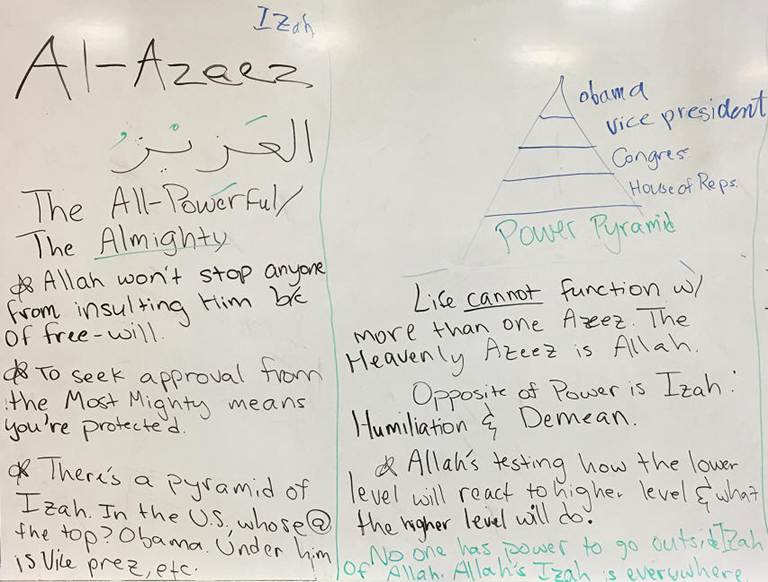 Izah
Al-Azeez
العَزِيزُ
The All-Powerful/
The Almighty
Allah won't stop anyone
from insulting Him b/c
of free-will.
To seek approval from
the Most Mighty means
you're protected.
There's a pyramid of
Izah. In the U.S., whose @
the top? Obama. Under him
is Vice prez, etc.
Obama
vice president
Congres
House of Reps.
Power Pyramid
Life cannot function w/
more than one Azeez. The
Heavenly Azeez is Allah.
Opposite of Power is Izah:
Humiliation & Demean.
Allah's testing how the lower
level will react to higher level & what
the higher level will do.
No one has power to go outside Izah
of Allah. Allah's Izah is everywhere